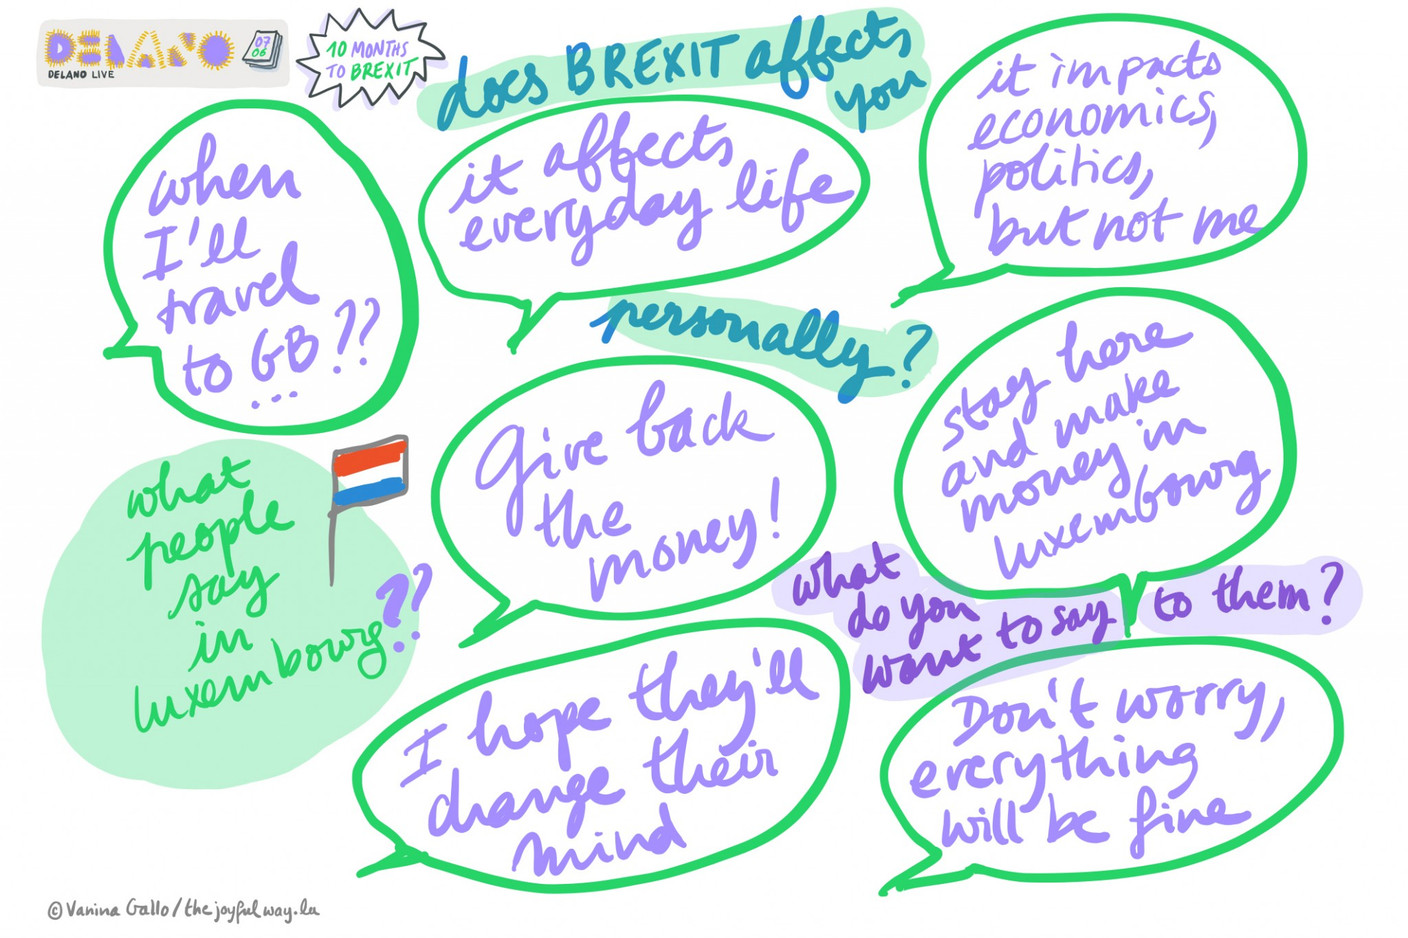 DELANO
DELANO LIVE
07
06
10 MONTHS
TO BREXIT
does BREXIT affects
you
personally?
when
I'll
travel
to GB??
...
it affects
everyday life
it impacts
economics,
politics,
but not me
what
people
say
in
luxembourg??
Give back
the
money!
stay here
and make
money in
luxembourg
what
do you
want to say
to them?
I hope they'll
change their
mind
Don't worry,
everything
will be fine
© Vanina Gallo/thejoyfulway.lu